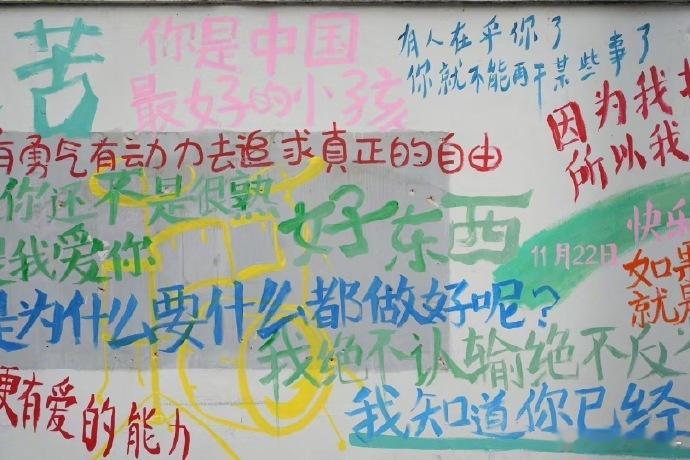 苦
你是中国
最好的小孩
有人在乎你了
你就不能再干某些事了
因为我
所以我
有勇气有动力去追求真正的自由
你还不是很熟
是我爱你
好东西
11月22日
快乐
如果
就是
是为什么要什么都做好呢?
我绝不认输绝不反
更有爱的能力
我知道你已经